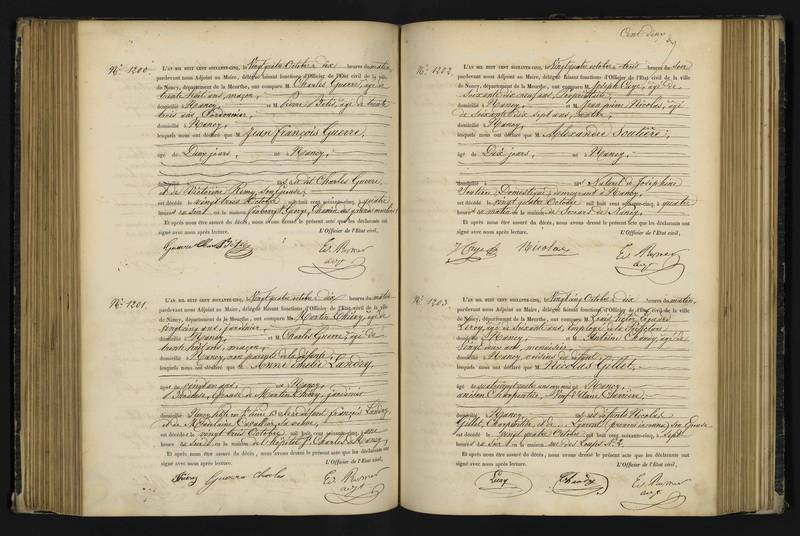 Nº 1200. L'AN MIL HUIT CENT SOIXANTE-CINQ, le Vingt quatre Octobre dix heures du matin
pardevant nous Adjoint au Maire, délégué faisant fonctions d'Officier de l'Etat civil de la ville
de Nancy, département de la Meurthe, ont comparu M. Charles Guerre, âgé de
trente huit ans, maçon,
domicilié à Nancy, et M. Pierre âgé de trente
trois ans, Cordonnier,
domicilié à Nancy,
lesquels nous ont déclaré que M. Jean François Guerre,
âgé de Deux jours, né à Nancy,
domicilié fils de Charles Guerre
et de Victorine Remy, son épouse,
est décédé le vingt trois Octobre mil huit cent soixante-cinq, à quatre
heures du soir en la maison faubourg St. George, Chemin des
Et après nous être assuré du décès, nous avons dressé le présent acte que les déclarants ont
signé avec nous après lecture. L'Officier de l'Etat civil,
Guerre Charles
Nº 1201. L'AN MIL HUIT CENT SOIXANTE-CINQ, Vingt quatre octobre dix heures du matin
pardevant nous Adjoint au Maire, délégué faisant fonctions d'Officier de l'Etat civil de la ville
de Nancy, département de la Meurthe, ont comparu M. Martin Thiéry, âgé de
vingt cinq ans, jardinier,
domicilié à Nancy, et M. Charles Guerre, âgé de
trente huit ans, maçon,
domicilié à Nancy, non parents de la défunte
lesquels nous ont déclaré que Anne Emélie Landry,
âgé de vingt un ans, né à Nancy,
épouse de Martin Thiéry, jardinier
domicilié fille de défunt François Landry,
et de Madelaine sa veuve,
est décédé le vingt trois Octobre mil huit cent soixante-cinq, à une
heure du soir en la maison de l'hôpital St. Charles à Nancy
Et après nous être assuré du décès, nous avons dressé le présent acte que les déclarants ont
signé avec nous après lecture. L'Officier de l'Etat civil,
Thiéry Guerre Charles
Cent deux
Nº 1202. L'AN MIL HUIT CENT SOIXANTE-CINQ, le Vingt quatre octobre trois heures du soir
pardevant nous Adjoint au Maire, délégué faisant fonctions d'Officier de l'Etat civil de la ville
de Nancy, département de la Meurthe, ont comparu M. Joseph âgé de
Soixante dix neuf ans, Propriétaire,
domicilié à Nancy, et M. Jean pierre Nicolas, âgé
de Soixante dix sept ans, rentier,
domicilié à Nancy,
lesquels nous ont déclaré que M. Alexandre Soulière,
âgé de Dix jours, né à Nancy,
domicilié fils Naturel de Joséphine
Domestique, demeurant à Nancy,
est décédé le vingt quatre Octobre mil huit cent soixante-cinq, à quatre
heures du matin en la maison de Secours de Nancy,
Et après nous être assuré du décès, nous avons dressé le présent acte que les déclarants ont
signé avec nous après lecture. L'Officier de l'Etat civil,
Nicolas
Nº 1203 L'AN MIL HUIT CENT SOIXANTE-CINQ, Vingt cinq Octobre dix heures du matin,
pardevant nous Adjoint au Maire, délégué faisant fonctions d'Officier de l'Etat civil de la ville
de Nancy, département de la Meurthe, ont comparu M. Louis Victor
Leroy, âgé de Soixante ans, employé de la Préfecture
domicilié à Nancy, et M. Antoine âgé de
Vingt deux ans, menuisier,
domicilié à Nancy, voisins du défunt
lesquels nous ont déclaré que M. Nicolas Gillet,
âgé de quatre vingt quatre ans né à Nancy,
ancien Charpentier, Veuf
domicilié à Nancy, fils de défunts Nicolas
Gillet, Charpentier, et de son épouse
est décédé le vingt quatre Octobre mil huit cent soixante-cinq, à sept
heures du soir en la maison rue des
Et après nous être assuré du décès, nous avons dressé le présent acte que les déclarants ont
signé avec nous après lecture. L'Officier de l'Etat civil,
Leroy